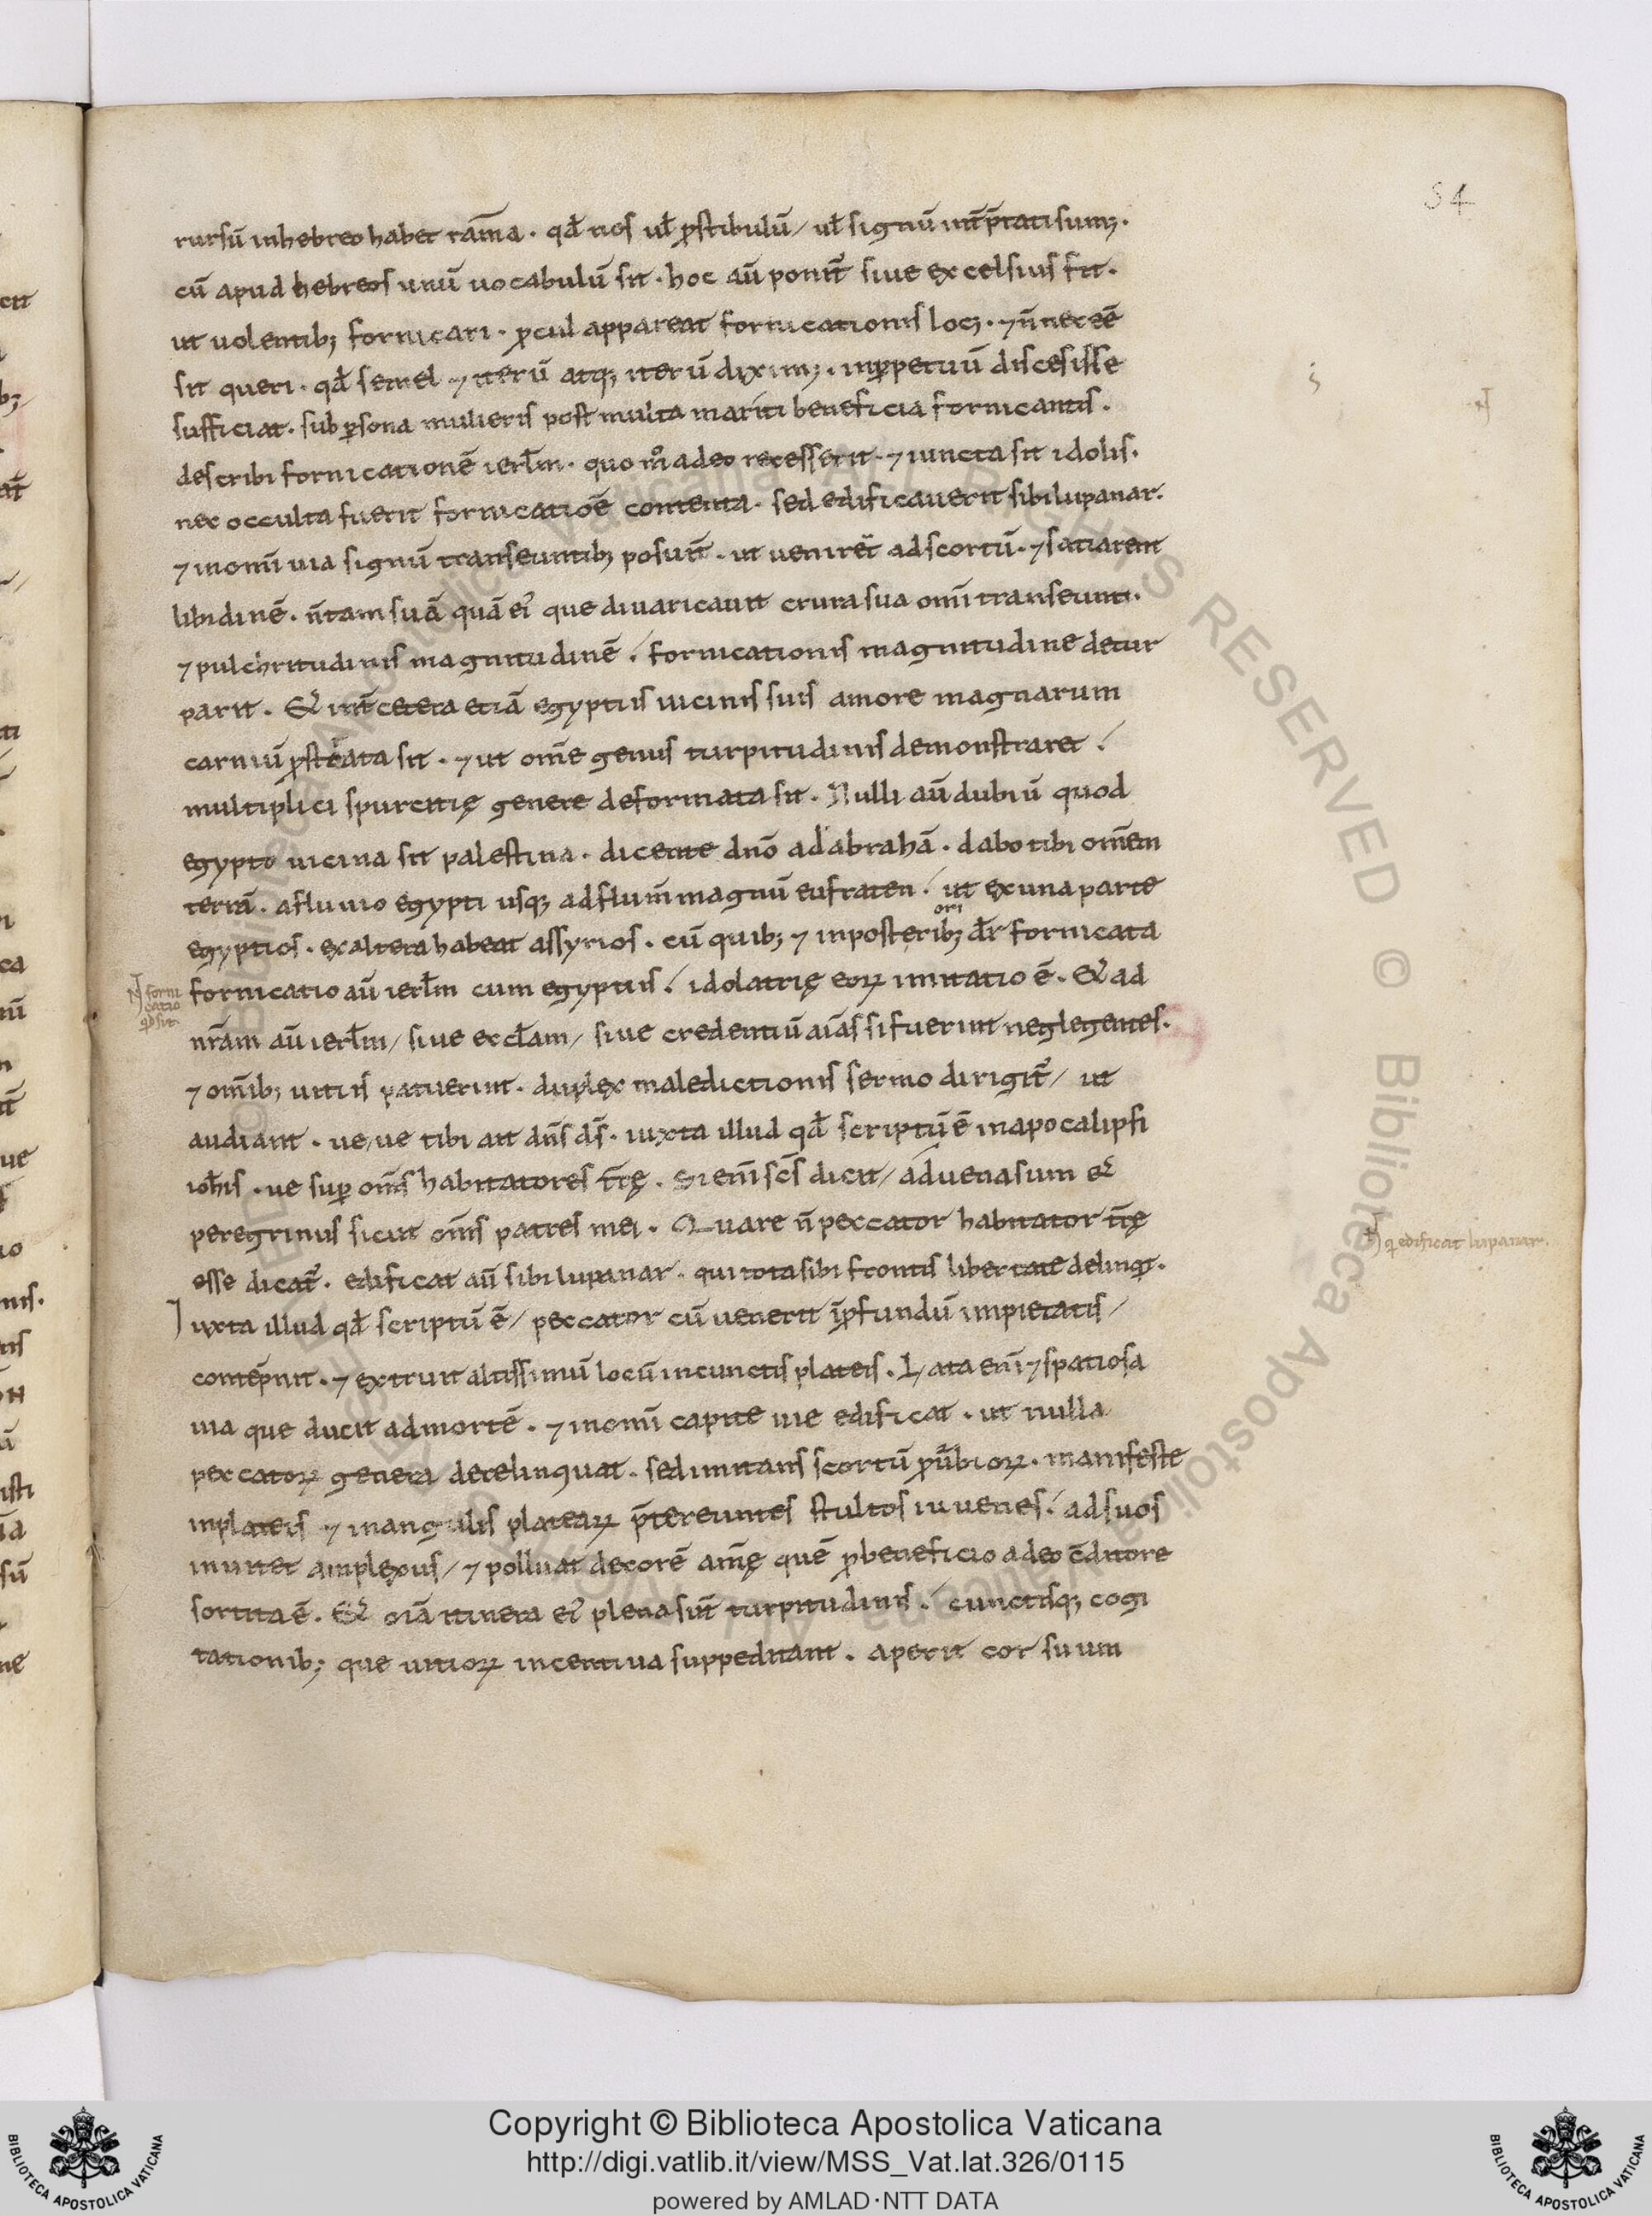 54
rursū inhebreo habet ram̄a · qđ nos ul̄ ꝓstibulū / ul̄ signū int̄p̄tati sumꝫ ·
cū apud hebreos unū uocabulū sit · hoc aū ponit᷑ siue excelsius fit ·
ut uolentibꝫ fornicari · ꝓcul appareat fornicationis locꝫ · ⁊ n̄ necēē
sit queri · qđ semel ⁊ iterū atqꝫ iterū diximꝫ · inꝑpetuū discesisse
sufficiat · sub ꝑsona mulieris post multa mariti beneficia fornicantis ·
describi fornicationē ierl̄m · quo m̊ adeo recesserit · ⁊ iuncta sit idolis ·
nec occulta fuerit fornicatiōe contenta · sed edificauerit sibi lupanar ·
⁊ inom̄i uia signū transeuntibꝫ posuit̄ · ut uenirēt ad scortū · ⁊ satiarent
libidinē · n̄ tam suā quā ei᷑ que diuaricauit crura sua om̄i transeunti ·
⁊ pulchritudinis magnitudinē · / fornicationis magnitudine detur
parit · Et int̄ cetera etiā egyptiis uicinis suis amore magnarum
carniū ꝓsterata sit · ⁊ ut om̄e genus turpitudinis demonstraret · /
multiplici spurcitię genere deformata sit · Nulli aū dubiū quod
egypto uicina sit palestina · dicente dn̄o ad abrahā · dabo tibi om̄em
terrā · afluuio egypti usqꝫ ad flum̄ magnū eufraten · / ut ex una parte
ori
egyptios · ex altera habeat assyrios · cū quibꝫ ⁊ inposteribꝫ dr̄ fornicata
fornicatio aū ierl̄m cum egyptiis · / idolatrię eoꝝ imitatio ē · Et ad
N forni
catio
qđ sit
nr̄am aū ierl̄m / siue eccl̄am / siue credentiū aīas si fuerint neglegentes ·
⁊ om̄ibꝫ uitiis patuerint · duplex maledictionis sermo dirigit᷑ / ut
audiant · ue / ue tibi ait dn̄s ds̄ · iuxta illud qđ scriptū ē inapocalipsi
ioh̄is · ue suꝑ om̄s habitatores tr̄ę · Si eni᷑ sc̄s dicit / aduena sum et
peregrinus sicut om̄s patres mei · Quare n̄ peccator habitator tr̄ę
esse dicat᷑ · edificat aū sibi lupanar · qui tota sibi frontis libertate delinq̄t ·
N qͥ edificat lupanar ·
Iuxta illud qđ scriptū ē / peccator cū uenerit ī ꝓfundū impietatis /
contēpnit · ⁊ extruit altissimū locū incunctis plateis · Lata eni᷑ ⁊ spatiosa
uia que ducit admortē · ⁊ inom̄i capite uie edificat · ut nulla
peccatoꝝ genera derelinquat · sed imitans scortū ꝓūbioꝝ · manifeste
inplateis ⁊ inangulis plateaꝝ p̄tereuntes stultos iuuenes · / adsuos
inuitet amplexus / ⁊ polluat decorē aīmę quē ꝓ beneficio adeo c̄ditore
sortita ē · Et oīa itinera ei᷑ plena sūt turpitudinis · / cunctisqꝫ cogi
tationibꝫ que uitioꝝ incentiua suppeditant · aperit cor suum
Copyright © Biblioteca Apostolica Vaticana
http://digi.vatlib.it/view/MSS_Vat.lat.326/0115
powered by AMLAD·NTT DATA